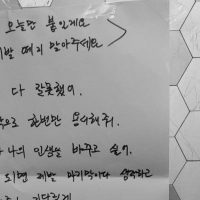 오늘만 붙인게요
발 떼지 말아주세요
다 잘못했어.
으로 한번만 용서해줘.
나의 인생을 바꾸고 싶어.
되면 제발 마지막이다 생각하고
기다릴게